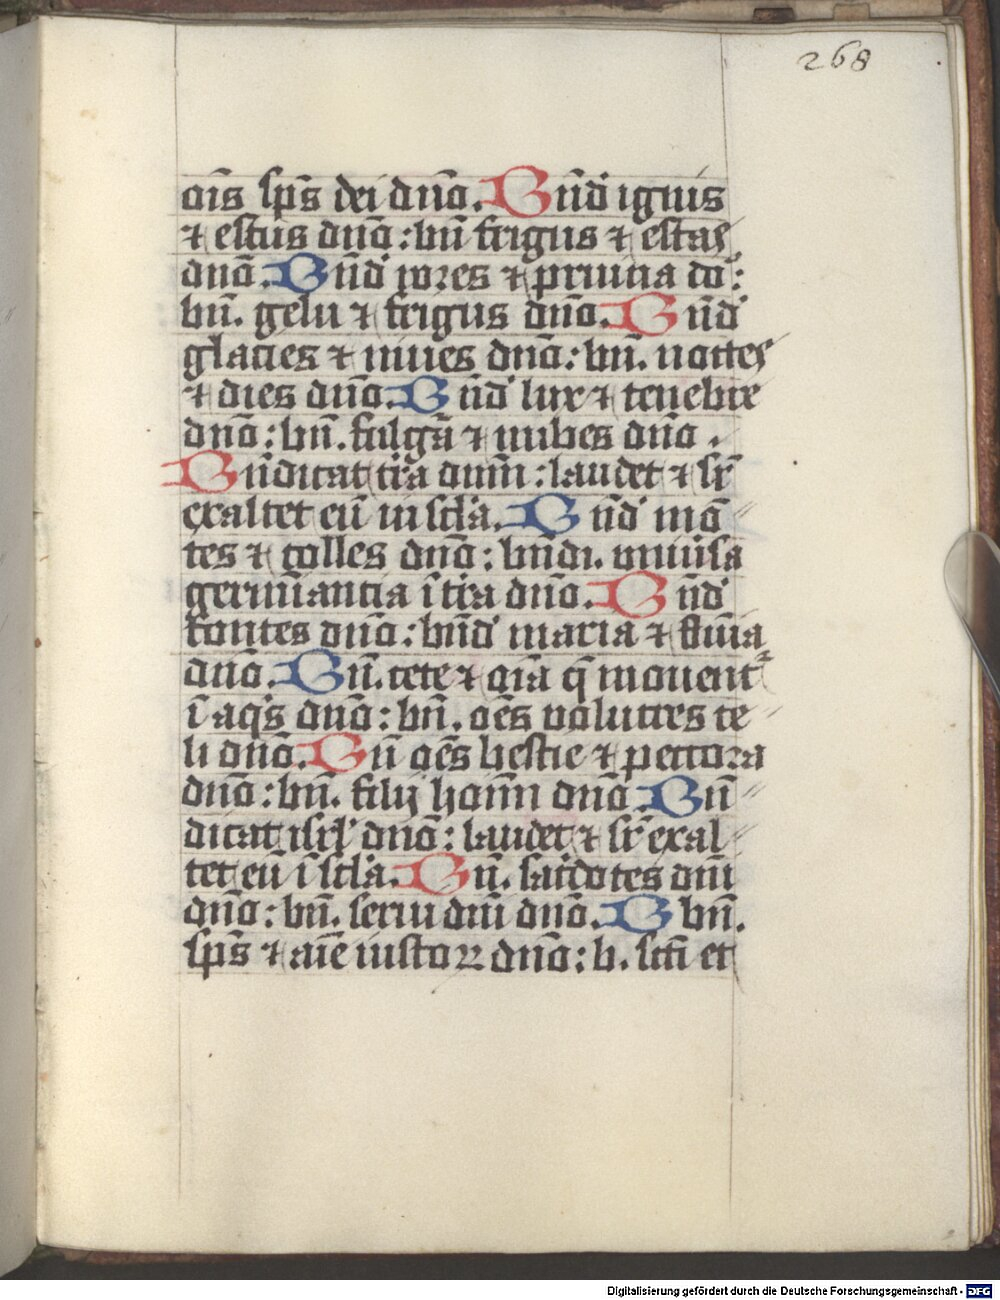 268
oīs sp̄s dei dn̄o. Bn̄d ignis
⁊ estus dn̄o: bn̄ frigus ⁊ estas
dn̄o. Bn̄d rores ⁊ pruina dō:
bn̄. gelu ⁊ frigus dn̄o. Bn̄d
glacies ⁊ niues dn̄o: bn̄. noctes
⁊ dies dn̄o. Bn̄d lux ⁊ tenebre
dn̄o: bn̄. fulgā ⁊ nubes dn̄o.
Bn̄dicat tr̄a dnm̄: laudet ⁊ sr̄
exaltet eū in sc̄la. Bn̄d mō
tes ⁊ colles dn̄o: bn̄di. uniūsa
germīantia ī tr̄a dn̄o. Bn̄d
fontes dn̄o: bn̄d maria ⁊ flūia
dn̄o. Bn̄. cete ⁊ oīa q̄ mouent᷑
ī aq̄s dn̄o: bn̄. oēs uolucres ce
li dn̄o. Bn̄ oēs bestie ⁊ peccora
dn̄o: bn̄. filij hoīm dn̄o. Bn̄
dicat isrl̄ dn̄o: laudet ⁊ sr̄ exal
tet eū ī sc̄la. Bn̄. sac̄dotes dn̄i
dn̄o: bn̄. serui dn̄i dn̄o. B bn̄.
sp̄s ⁊ aīe iustoꝝ dn̄o: b. sc̄ti et
Digitalisierung gefördert durch die Deutsche Forschungsgemeinschaft - DFG